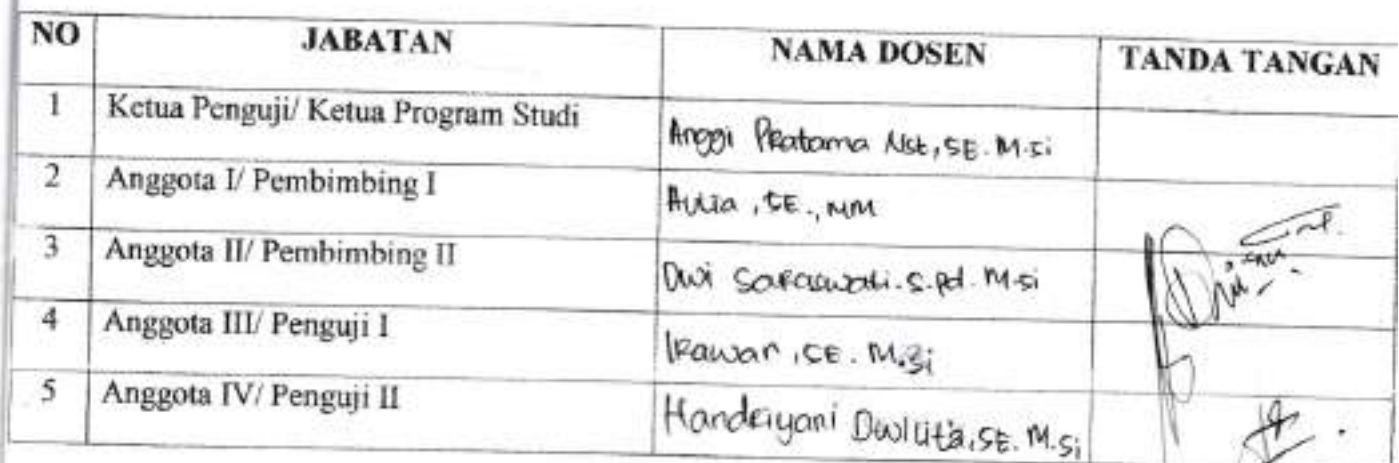 NO JABATAN NAMA DOSEN TANDA TANGAN
1 Ketua Penguji/ Ketua Program Studi Anggi Pratama Nst, SE. M.Si
2 Anggota I/ Pembimbing I Aulia, SE., MM
3 Anggota II/ Pembimbing II Dwi Saraswati. S.Pd. M.Si
4 Anggota III/ Penguji I Irawan, SE. M.Si
5 Anggota IV/ Penguji II Handriyani Dwilita, SE. M.Si